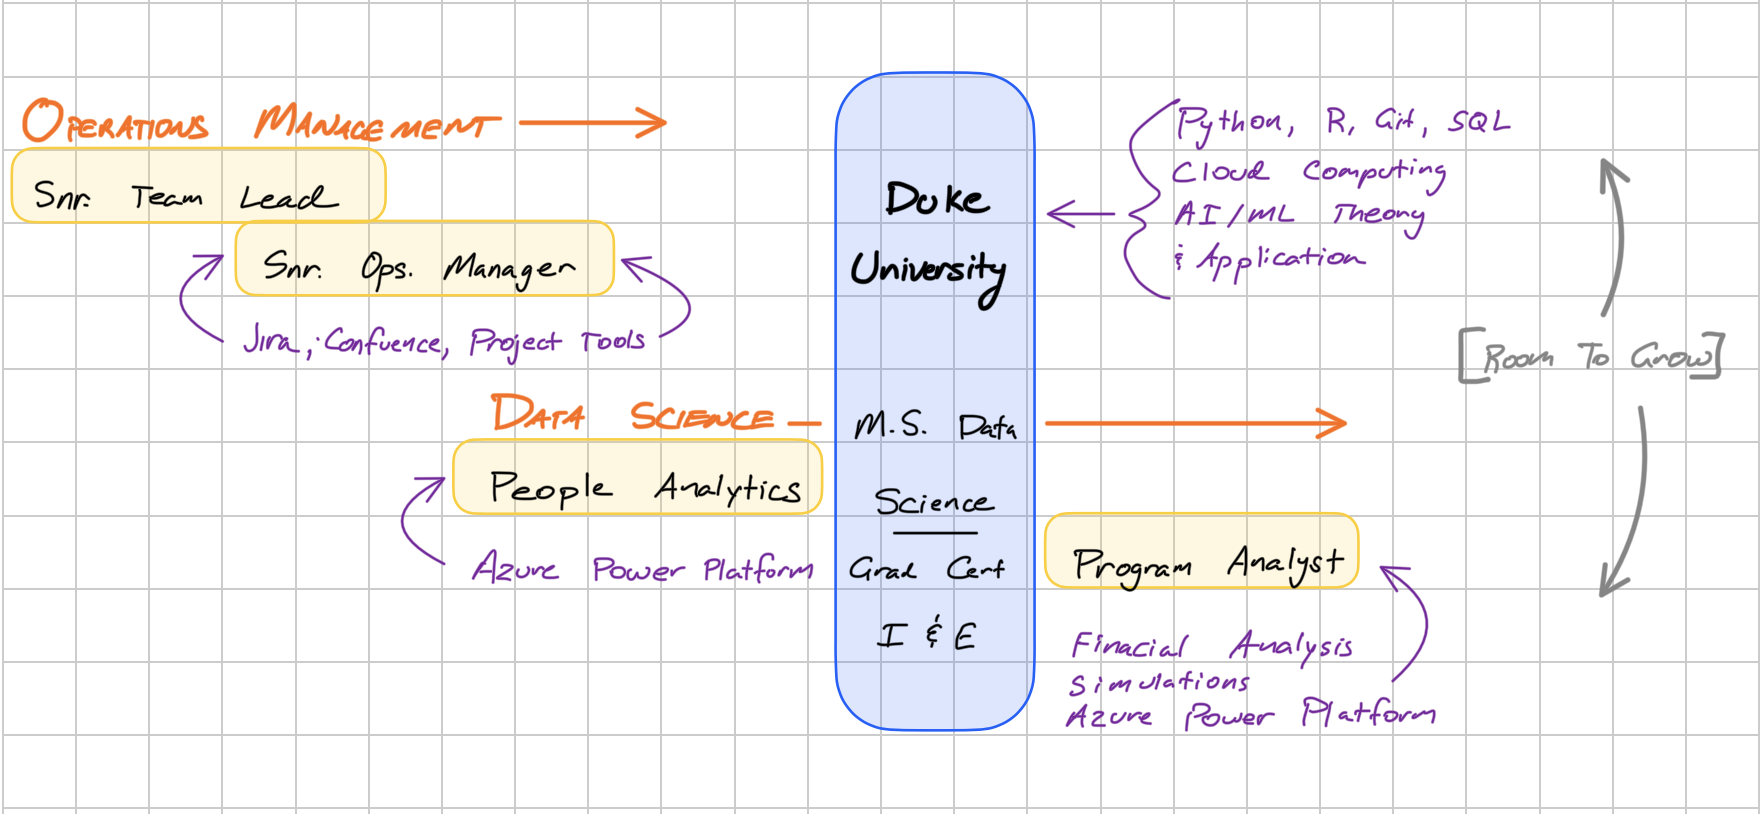 OPERATIONS MANAGEMENT
Snr. Team Lead
Snr. Ops. Manager
Jira, Confuence, Project Tools
DATA SCIENCE
People Analytics
Azure Power Platform
Duke
University
M.S. Data
Science
Grad Cert
I & E
Python, R, Git, SQL
Cloud Computing
AI/ML Theory
& Application
Program Analyst
Finacial Analysis
Simulations
Azure Power Platform
[Room To Grow]